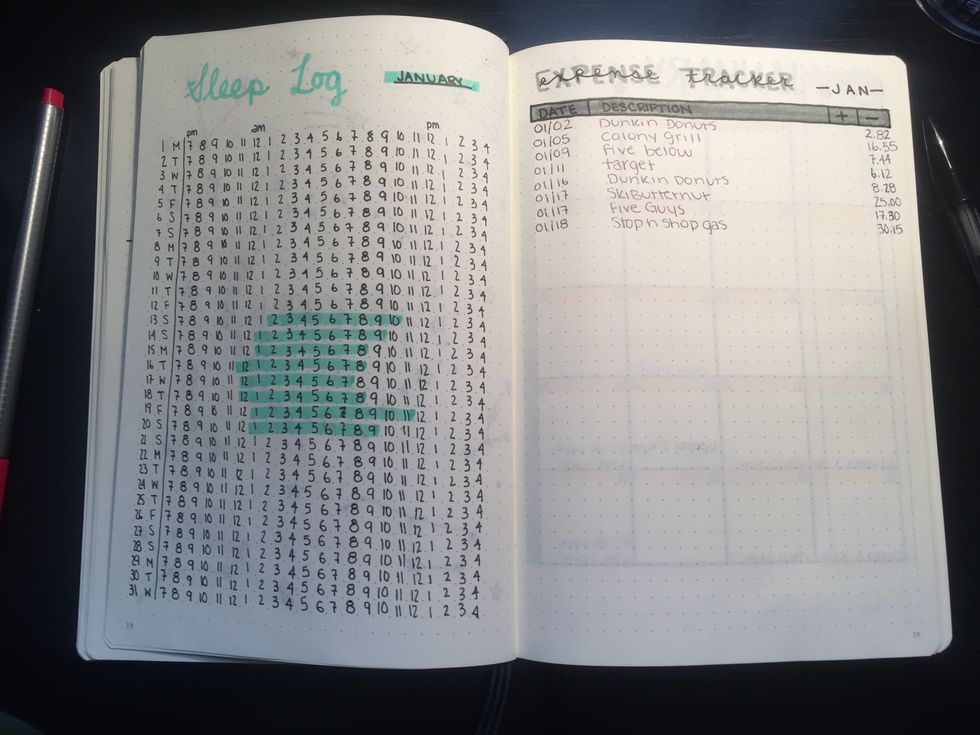 Sleep Log JANUARY
pm am pm
1 M 7 8 9 10 11 12 1 2 3 4 5 6 7 8 9 10 11 12 1 2 3 4
2 T 7 8 9 10 11 12 1 2 3 4 5 6 7 8 9 10 11 12 1 2 3 4
3 W 7 8 9 10 11 12 1 2 3 4 5 6 7 8 9 10 11 12 1 2 3 4
4 T 7 8 9 10 11 12 1 2 3 4 5 6 7 8 9 10 11 12 1 2 3 4
5 F 7 8 9 10 11 12 1 2 3 4 5 6 7 8 9 10 11 12 1 2 3 4
6 S 7 8 9 10 11 12 1 2 3 4 5 6 7 8 9 10 11 12 1 2 3 4
7 S 7 8 9 10 11 12 1 2 3 4 5 6 7 8 9 10 11 12 1 2 3 4
8 M 7 8 9 10 11 12 1 2 3 4 5 6 7 8 9 10 11 12 1 2 3 4
9 T 7 8 9 10 11 12 1 2 3 4 5 6 7 8 9 10 11 12 1 2 3 4
10 W 7 8 9 10 11 12 1 2 3 4 5 6 7 8 9 10 11 12 1 2 3 4
11 T 7 8 9 10 11 12 1 2 3 4 5 6 7 8 9 10 11 12 1 2 3 4
12 F 7 8 9 10 11 12 1 2 3 4 5 6 7 8 9 10 11 12 1 2 3 4
13 S 7 8 9 10 11 12 1 2 3 4 5 6 7 8 9 10 11 12 1 2 3 4
14 S 7 8 9 10 11 12 1 2 3 4 5 6 7 8 9 10 11 12 1 2 3 4
15 M 7 8 9 10 11 12 1 2 3 4 5 6 7 8 9 10 11 12 1 2 3 4
16 T 7 8 9 10 11 12 1 2 3 4 5 6 7 8 9 10 11 12 1 2 3 4
17 W 7 8 9 10 11 12 1 2 3 4 5 6 7 8 9 10 11 12 1 2 3 4
18 T 7 8 9 10 11 12 1 2 3 4 5 6 7 8 9 10 11 12 1 2 3 4
19 F 7 8 9 10 11 12 1 2 3 4 5 6 7 8 9 10 11 12 1 2 3 4
20 S 7 8 9 10 11 12 1 2 3 4 5 6 7 8 9 10 11 12 1 2 3 4
21 S 7 8 9 10 11 12 1 2 3 4 5 6 7 8 9 10 11 12 1 2 3 4
22 M 7 8 9 10 11 12 1 2 3 4 5 6 7 8 9 10 11 12 1 2 3 4
23 T 7 8 9 10 11 12 1 2 3 4 5 6 7 8 9 10 11 12 1 2 3 4
24 W 7 8 9 10 11 12 1 2 3 4 5 6 7 8 9 10 11 12 1 2 3 4
25 T 7 8 9 10 11 12 1 2 3 4 5 6 7 8 9 10 11 12 1 2 3 4
26 F 7 8 9 10 11 12 1 2 3 4 5 6 7 8 9 10 11 12 1 2 3 4
27 S 7 8 9 10 11 12 1 2 3 4 5 6 7 8 9 10 11 12 1 2 3 4
28 S 7 8 9 10 11 12 1 2 3 4 5 6 7 8 9 10 11 12 1 2 3 4
29 M 7 8 9 10 11 12 1 2 3 4 5 6 7 8 9 10 11 12 1 2 3 4
30 T 7 8 9 10 11 12 1 2 3 4 5 6 7 8 9 10 11 12 1 2 3 4
31 W 7 8 9 10 11 12 1 2 3 4 5 6 7 8 9 10 11 12 1 2 3 4
18
EXPENSE TRACKER —JAN—
DATE DESCRIPTION + −
01/02 Dunkin Donuts 2.82
01/05 Colony Grill 16.55
01/09 Five below 7.44
01/11 target 6.12
01/16 Dunkin Donuts 8.28
01/17 SkiButternut 25.00
01/17 Five Guys 17.30
01/18 Stop n Shop gas 30.15
19